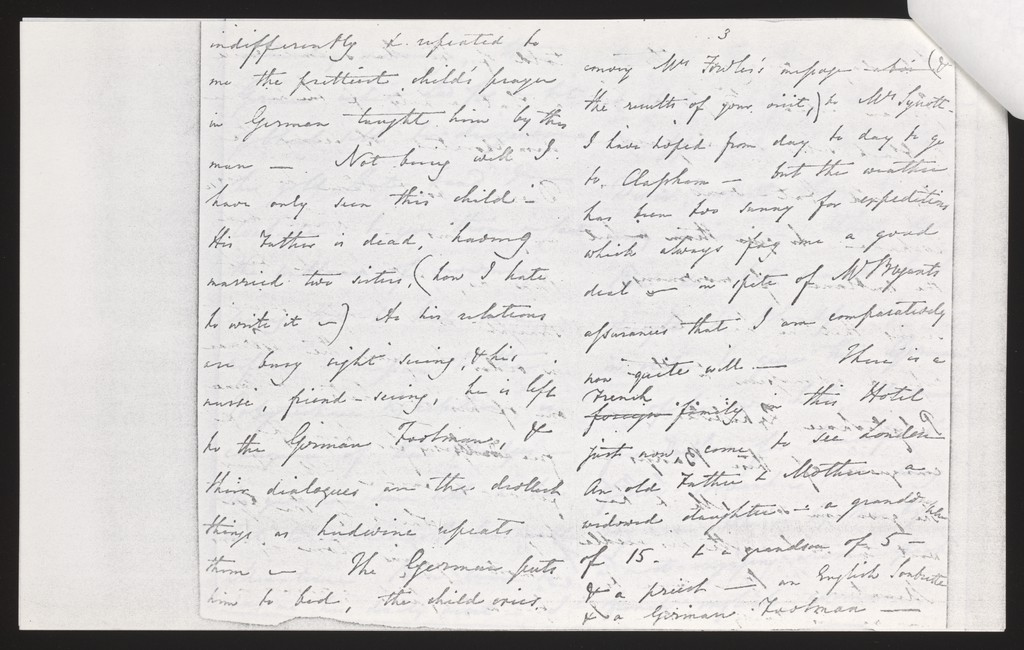 indifferently & repeated to
me the prettiest child's prayer
in German taught him by this
man — Not being well I
have only seen this child —
His Father is dead, having
married two sisters, (how I hate
to write it —) As his relations
are busy sight seeing, & his
nurse, friend-seeing, he is left
to the German Footman, &
their dialogues are the drollest
things as
repeats
them — The German puts
him to bed, the child cries,
3
convey Mrs Fowler's message (&
the results of your visit,) to Mr Synott
I have hoped from day to day to go
to Clapham — but the weather
has been too sunny for expeditions
which always fag me a good
deal — in spite of Mr Bryant's
assurances that I am comparatively
now quite well — There is a
French
foreign family in this Hotel
just now come to see London
An old Father & Mother — a
widowed daughter — a granddaughter
of 15 — & a grandson of 5 —
& a priest — an English Soubrette
& a German Footman —